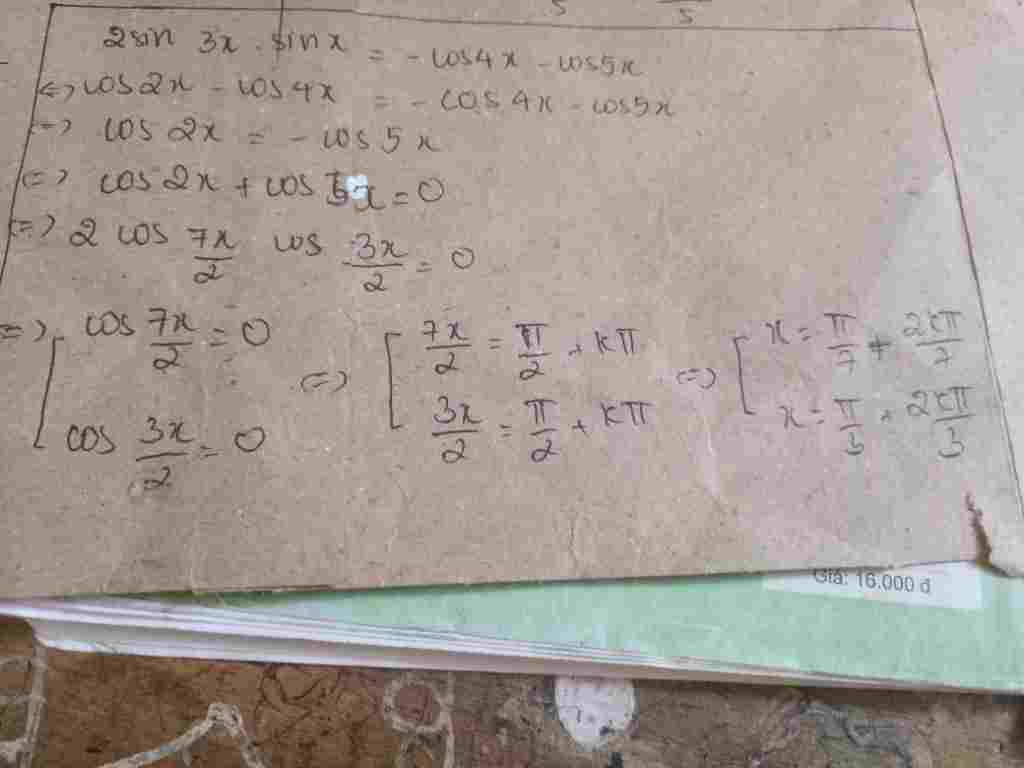 5 5
2sin 3x . sin x = - cos4x - cos5x
<=> cos2x - cos4x = - cos 4x - cos5x
<=> cos 2x = - cos 5x
<=> cos 2x + cos 5x = 0
<=> 2 cos 7x/2 cos 3x/2 = 0
<=> [ cos 7x/2 = 0 <=> [ 7x/2 = π/2 + kπ <=> [ x = π/7 + 2kπ/7
cos 3x/2 = 0 3x/2 = π/2 + kπ x = π/3 + 2kπ/3
Giá: 16.000 đ